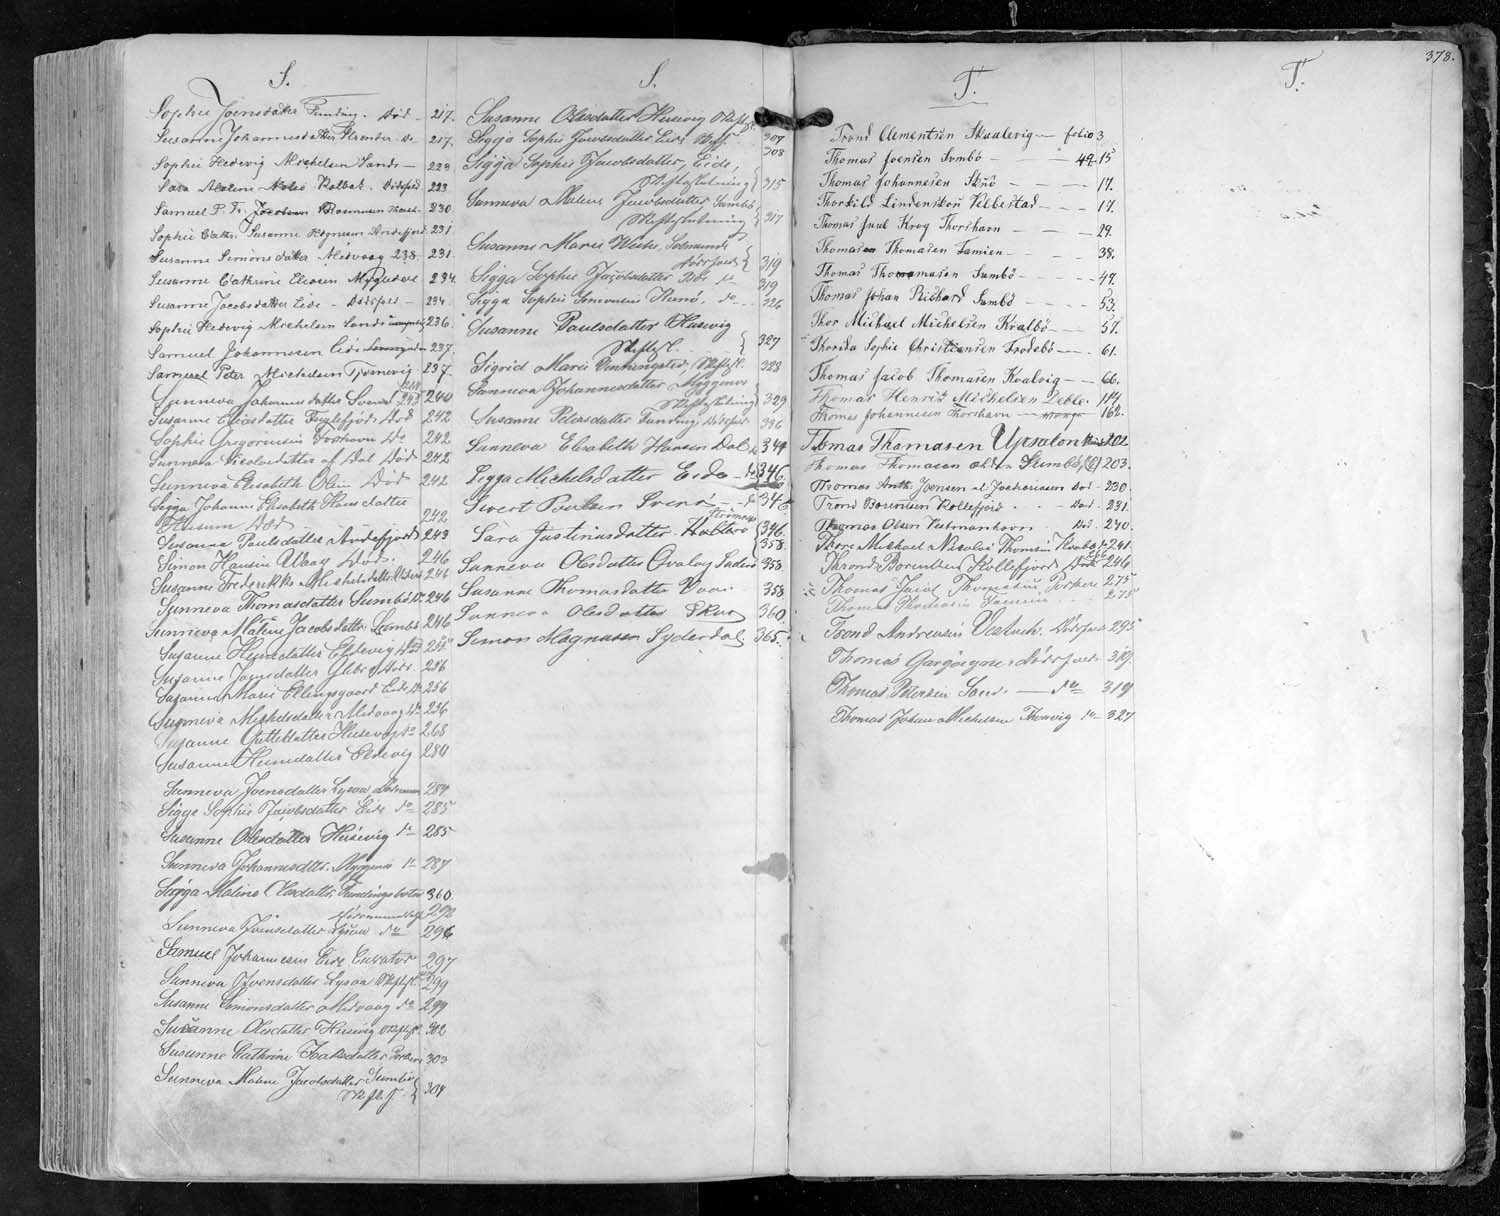 S.
Sophie Joensdatter Funding. Död - 217.
Susanne Johannesdatter Strender Do 217.
Sophie Hedevig Michelsen Sand - 223
Sara Malene Kolbak. Dödsfald. 223
Samuel P. Fr. Jacobsen Rasmussen 230
Sophie Cathr. Susanne Andefjord 231.
Susanne Simonsdatter Midvaag 238. 231.
Susanne Cathrine Eliesen Myggenes 234
Susanne Jacobsdatter Eide - Dödsfald - 234.
Sophie Hedevig Michelsen Sand 236.
Samuel Johannesen Eide 237.
Samuel Peter Michelsen Tjörnevig 237.
Sunneva Johannesdatter 240
Susanne Eliasdatter Fuglefjord Död 242
Sophie Gregoriusen Thorshavn Do 242
Sunneva Nicolaidatter af Dal Död 242
Sunneva Elisabeth Olsen Död 242
Sigga Johanne Elisabeth Hansdatter
Husum Död 242
Susanna Paulsdatter Andefjord 243
Simon Hansen Waag Död. 246
Susanne Frederikke Michelsdatter 246
Sunneva Thomasdatter Sumbö Do 246
Sunneva Malene Jacobsdatter Sumbö 246
Susanne Heinesdatter Eldevig 255
Susanne 256
Susanne Marie Ellingsgaard Eide Do 256
Sunneva Michelsdatter Midvaag Do 256
Susanne Guttesdatter Husevig Do 268
Susanne Heinesdatter Eldevig 280
Sunneva Joensdatter Lysaa 284
Sigge Sophie Jacobsdatter Eide do 285
Susanne Olesdatter Husevig do 285
Sunneva Johannesdttr. Myggenes do 287
Sigga Maline Olesdatter, Fundingsbotn 360
292
Sunneva Joensdatter Lysaa do 296
Samuel Johannesen Eide Curator 297
Sunneva Joensdatter Lysaa Skiftesl. 299
Susanne Simonsdatter Midvaag do 299
Susanne Olesdatter Husevig Skiftesl. 302
Susanne Cathrine Isaksdatter Porkere 303
Sunneva Malene Jacobsdatter Sumbö
Skiftesl. } 304
S.
Susanne Olesdatter Husevig Skiftesl. 307
Sigga Sophie Jacobsdatter Eide Skiftesl. 308
Sigga Sophie Jacobsdatter, Eide,
Skifteslutning } 315
Sunneva Malene Jacobsdatter Sumbö
Skifteslutning } 317
Susanne Marie Weihe, Selmunde
Dödsfald } 319
Sigga Sophie Jacobsdatter Eide do 319
Sigga Sophie Simonsen Hvannesund. do - 326
Susanne Paulsdatter Husevig
Skiftesl. } 327
Sigrid Marie Vinthersgter. Skiftesl. 328
Sunneva Johannesdatter Myggenes
Skifteslutning } 329
Susanne Petersdatter Funding. Dödsfald 336
Sunneva Elisabeth Hansen Dal do 344
Sigga Michelsdatter Eide - do 346
Sivert Poulsen Svinö - do 346
Strömnæs
Sara Justinusdatter Haltere { 346. 358.
Sunneva Olesdatter Qvalbø 358
Susanne Thomasdatter Vaag 358
Sunneva Olesdatter Skuø 360.
Simon Magnusen Syderdal. 365.
378.
T.
Trond Clementsen Skaalevig - folio 3
Thomas Joensen Sumbö - 49. 15
Thomas Johannesen Skuö - - - 17.
Thorkild Lindenskou Velbestad - - 17.
Thomas Juul Krog Thorshavn - - 29.
Thomasen Thomasen Famien - - 38.
Thomas Thomassen Sumbö - - 49.
Thomas Johan Richard Sumbö - - - 53.
Thor Michael Michelsen Kvalbö - - 57.
Thorida Sophie Christiansen Frodebö - - 61.
Thomas Jacob Thomasen Kvalvig - - 66.
Thomas Henrik Michelsen Deble. 114.
Thomas Johannesen Thorshavn 162.
Thomas Thomasen Upsalon 202
Thomas Thomasen Sumbö, 203.
Thomas Anth. Joensen Död - 230.
Trond Berentsen Kollefjord . . - Död. 231.
Thomas Olsen Vestmanhavn . Död. 240.
Thore Michael Nicolai Thomsen Kvalbö 241.
Thrond Berentsen Kollefjord Död 246
Thomas Jacob Thomasen Porkere 275
Thomas Thomasen Famien - - 275
Trond Andreasen Vestmh. Dödsfald 295
Thomas Gargoigne. Dödsfald. 319.
Thomas Petersen Sand. - do 319
Thomas Johan Michelsen Thorvig do 327
T.